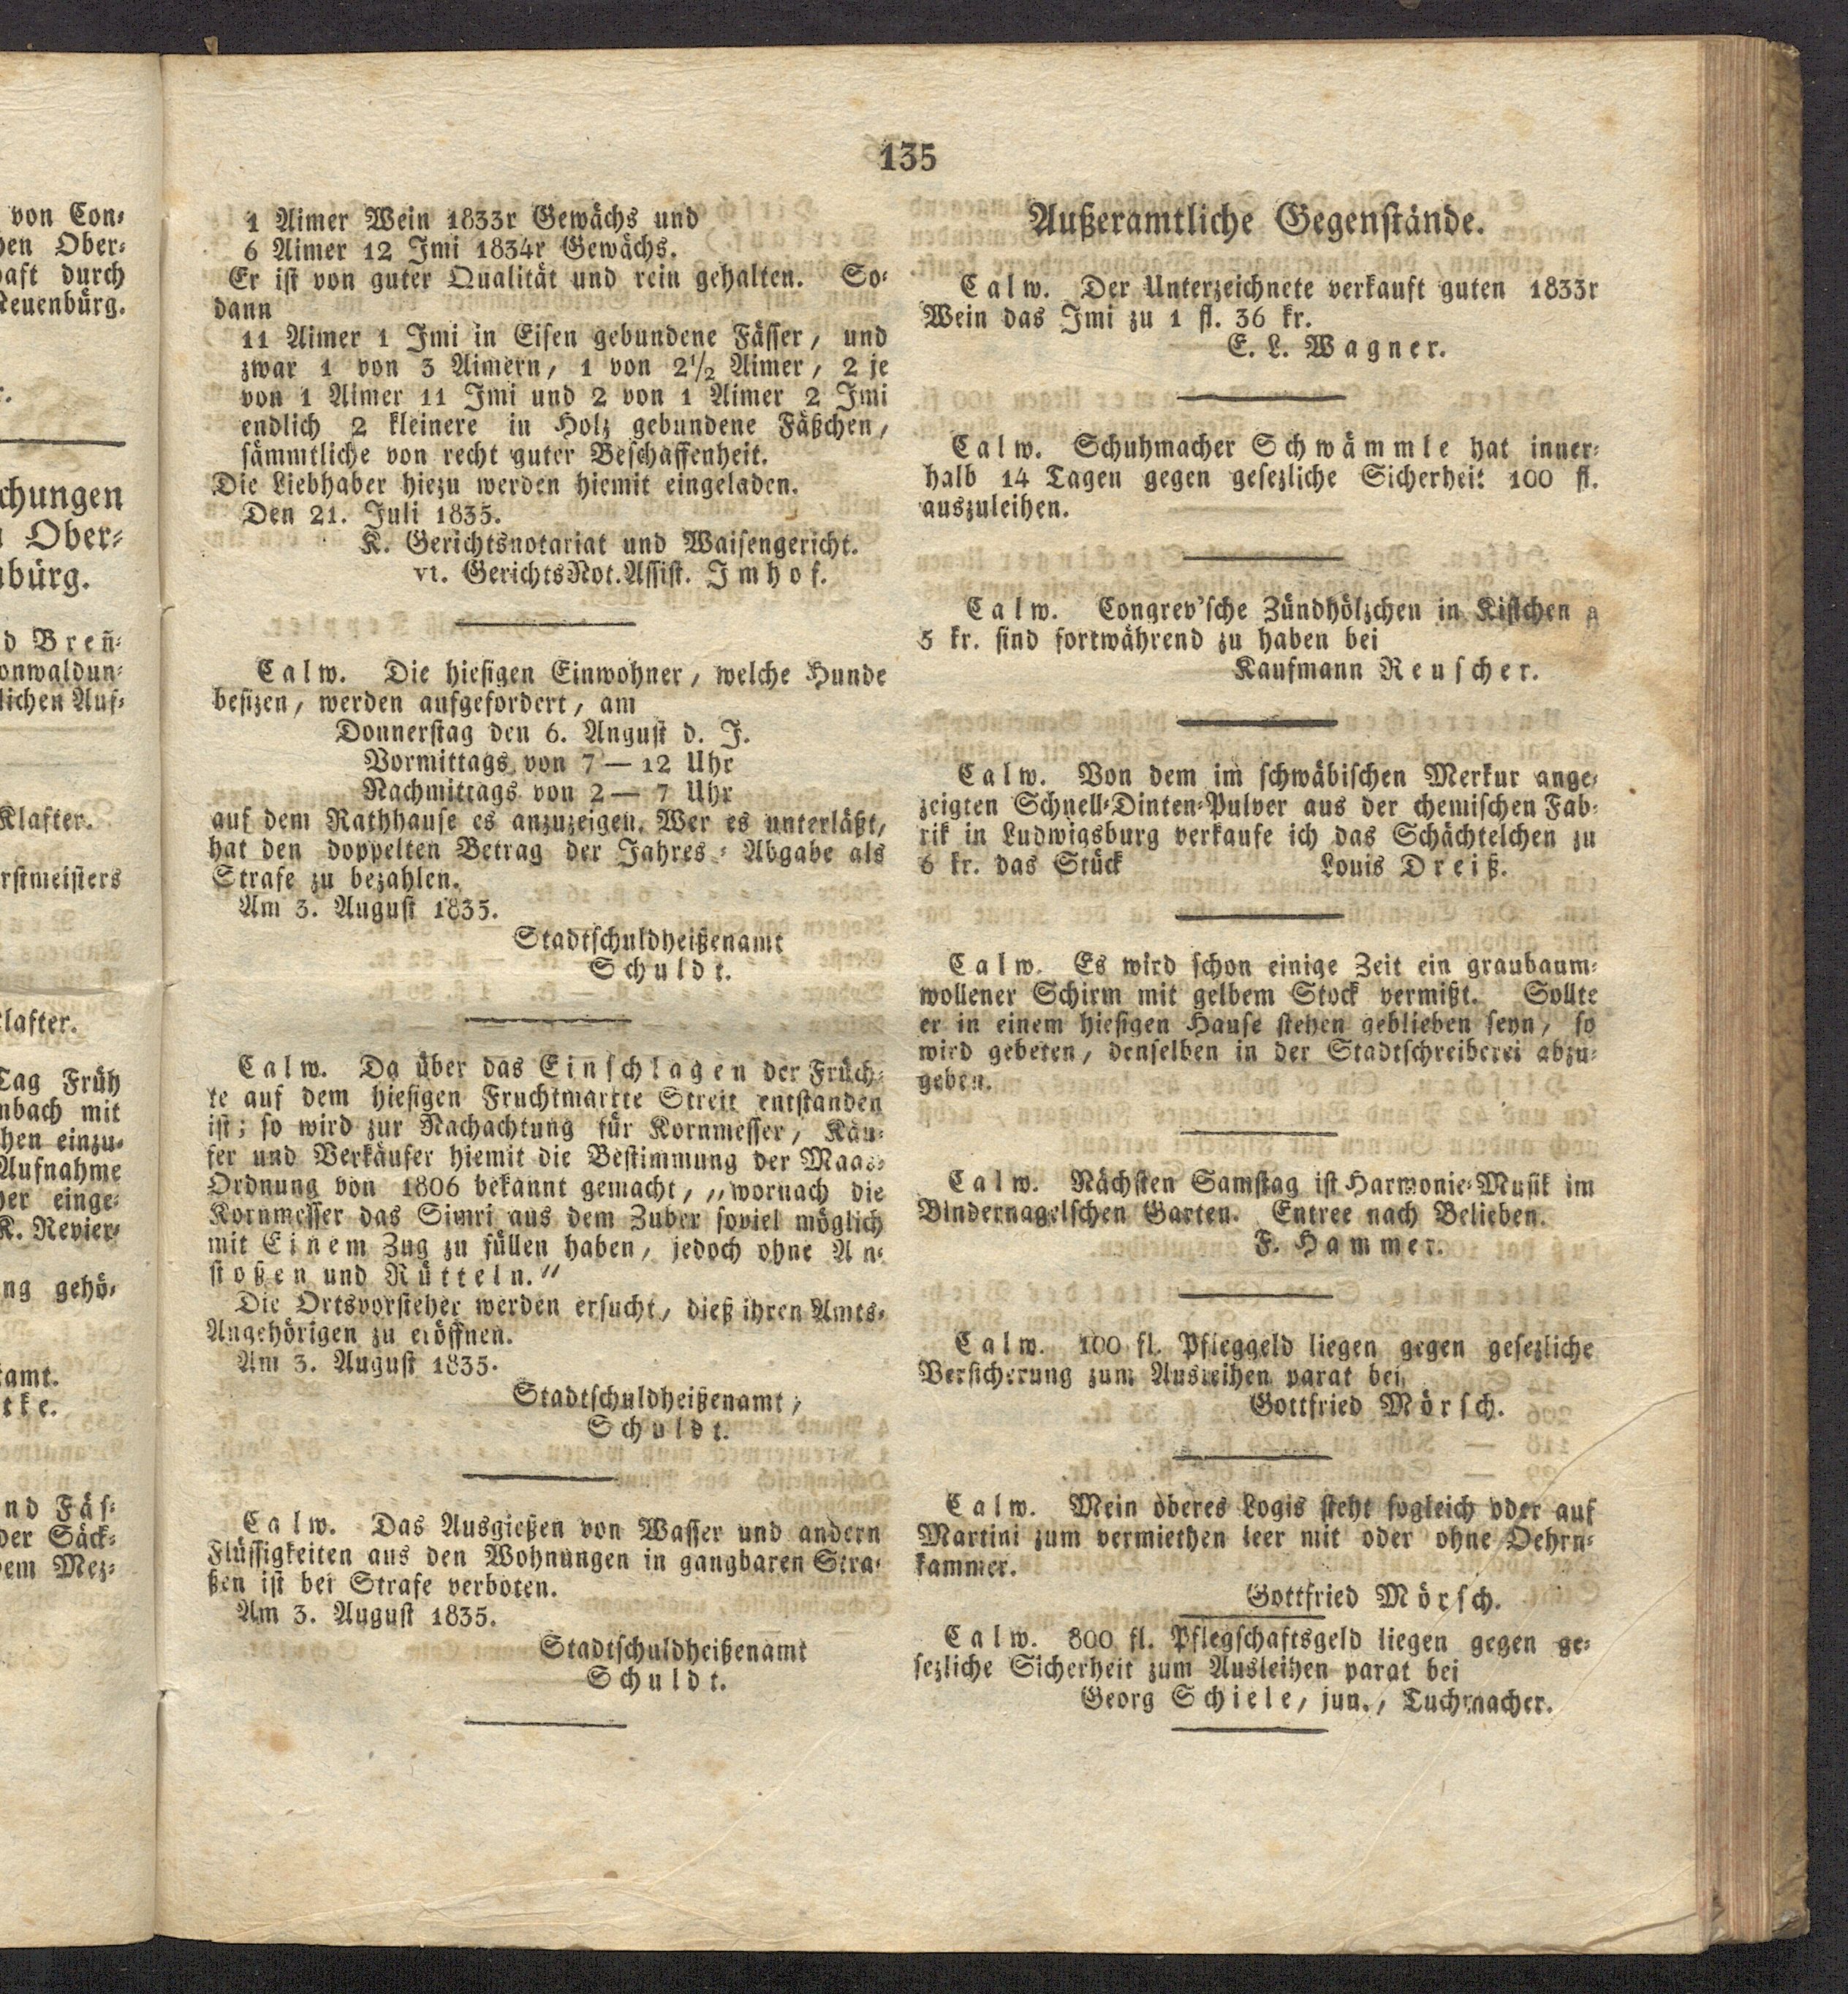 135
von Con⸗
hen Ober⸗
haft durch
Neuenbürg.
chungen
Ober⸗
bürg.
d Breñ⸗
onwaldun⸗
lichen Auf⸗
Klafter.
rstmeisters
lafter.
Tag Früh
nbach mit
hen einzu⸗
Aufnahme
her einge⸗
K. Revier⸗
ng gehö⸗
amt.
tke.
nd Fäs⸗
der Säck⸗
em Mez⸗
1 Aimer Wein 1833r Gewächs und
6 Aimer 12 Imi 1834r Gewächs.
Er ist von guter Qualität und rein gehalten. So⸗
dann
11 Aimer 1 Imi in Eisen gebundene Fässer, und
zwar 1 von 3 Aimern, 1 von 2 1/2 Aimer, 2 je
von 1 Aimer 11 Imi und 2 von 1 Aimer 2 Imi
endlich 2 kleinere in Holz gebundene Fäßchen,
sämmtliche von recht guter Beschaffenheit.
Die Liebhaber hiezu werden hiemit eingeladen.
Den 21. Juli 1835.
K. Gerichtsnotariat und Waisengericht.
vt. GerichtsNot.Assist. Imhof.
Calw. Die hiesigen Einwohner, welche Hunde
besizen, werden aufgefordert, am
Donnerstag den 6. August d. J.
Vormittags von 7 — 12 Uhr
Nachmittags von 2 — 7 Uhr
auf dem Rathhause es anzuzeigen. Wer es unterläßt,
hat den doppelten Betrag der Jahres⸗Abgabe als
Strafe zu bezahlen.
Am 3. August 1835.
Stadtschuldheißenamt
Schuldt.
Calw. Da über das Einschlagen der Früch⸗
te auf dem hiesigen Fruchtmarkte Streit entstanden
ist; so wird zur Nachachtung für Kornmesser, Käu⸗
fer und Verkäufer hiemit die Bestimmung der Maas⸗
Ordnung von 1806 bekannt gemacht, „wornach die
Kornmesser das Simri aus dem Zuber soviel möglich
mit Einem Zug zu füllen haben, jedoch ohne An⸗
stoßen und Rütteln.“
Die Ortsvorsteher werden ersucht, dieß ihren Amts⸗
Angehörigen zu eröffnen.
Am 3. August 1835.
Stadtschuldheißenamt,
Schuldt.
Calw. Das Ausgießen von Wasser und andern
Flüssigkeiten aus den Wohnungen in gangbaren Stra⸗
ßen ist bei Strafe verboten.
Am 3. August 1835.
Stadtschuldheißenamt
Schuldt.
Außeramtliche Gegenstände.
Calw. Der Unterzeichnete verkauft guten 1833r
Wein das Imi zu 1 fl. 36 kr.
E. L. Wagner.
Calw. Schuhmacher Schwämmle hat inner⸗
halb 14 Tagen gegen gesezliche Sicherheit 100 fl.
auszuleihen.
Calw. Congrev'sche Zündhölzchen in Kistchen a
5 kr. sind fortwährend zu haben bei
Kaufmann Reuscher.
Calw. Von dem im schwäbischen Merkur ange⸗
zeigten Schnell⸗Dinten⸗Pulver aus der chemischen Fab⸗
rik in Ludwigsburg verkaufe ich das Schächtelchen zu
6 kr. das Stück Louis Dreiß.
Calw. Es wird schon einige Zeit ein graubaum⸗
wollener Schirm mit gelbem Stock vermißt. Sollte
er in einem hiesigen Hause stehen geblieben seyn, so
wird gebeten, denselben in der Stadtschreiberei abzu⸗
geben.
Calw. Nächsten Samstag ist Harmonie⸗Musik im
Bindernagelschen Garten. Entree nach Belieben.
F. Hammer.
Calw. 100 fl. Pfleggeld liegen gegen gesezliche
Versicherung zum Ausleihen parat bei
Gottfried Mörsch.
Calw. Mein oberes Logis steht sogleich oder auf
Martini zum vermiethen leer mit oder ohne Oehrn⸗
kammer.
Gottfried Mörsch.
Calw. 800 fl. Pflegschaftsgeld liegen gegen ge⸗
sezliche Sicherheit zum Ausleihen parat bei
Georg Schiele, jun., Tuchmacher.